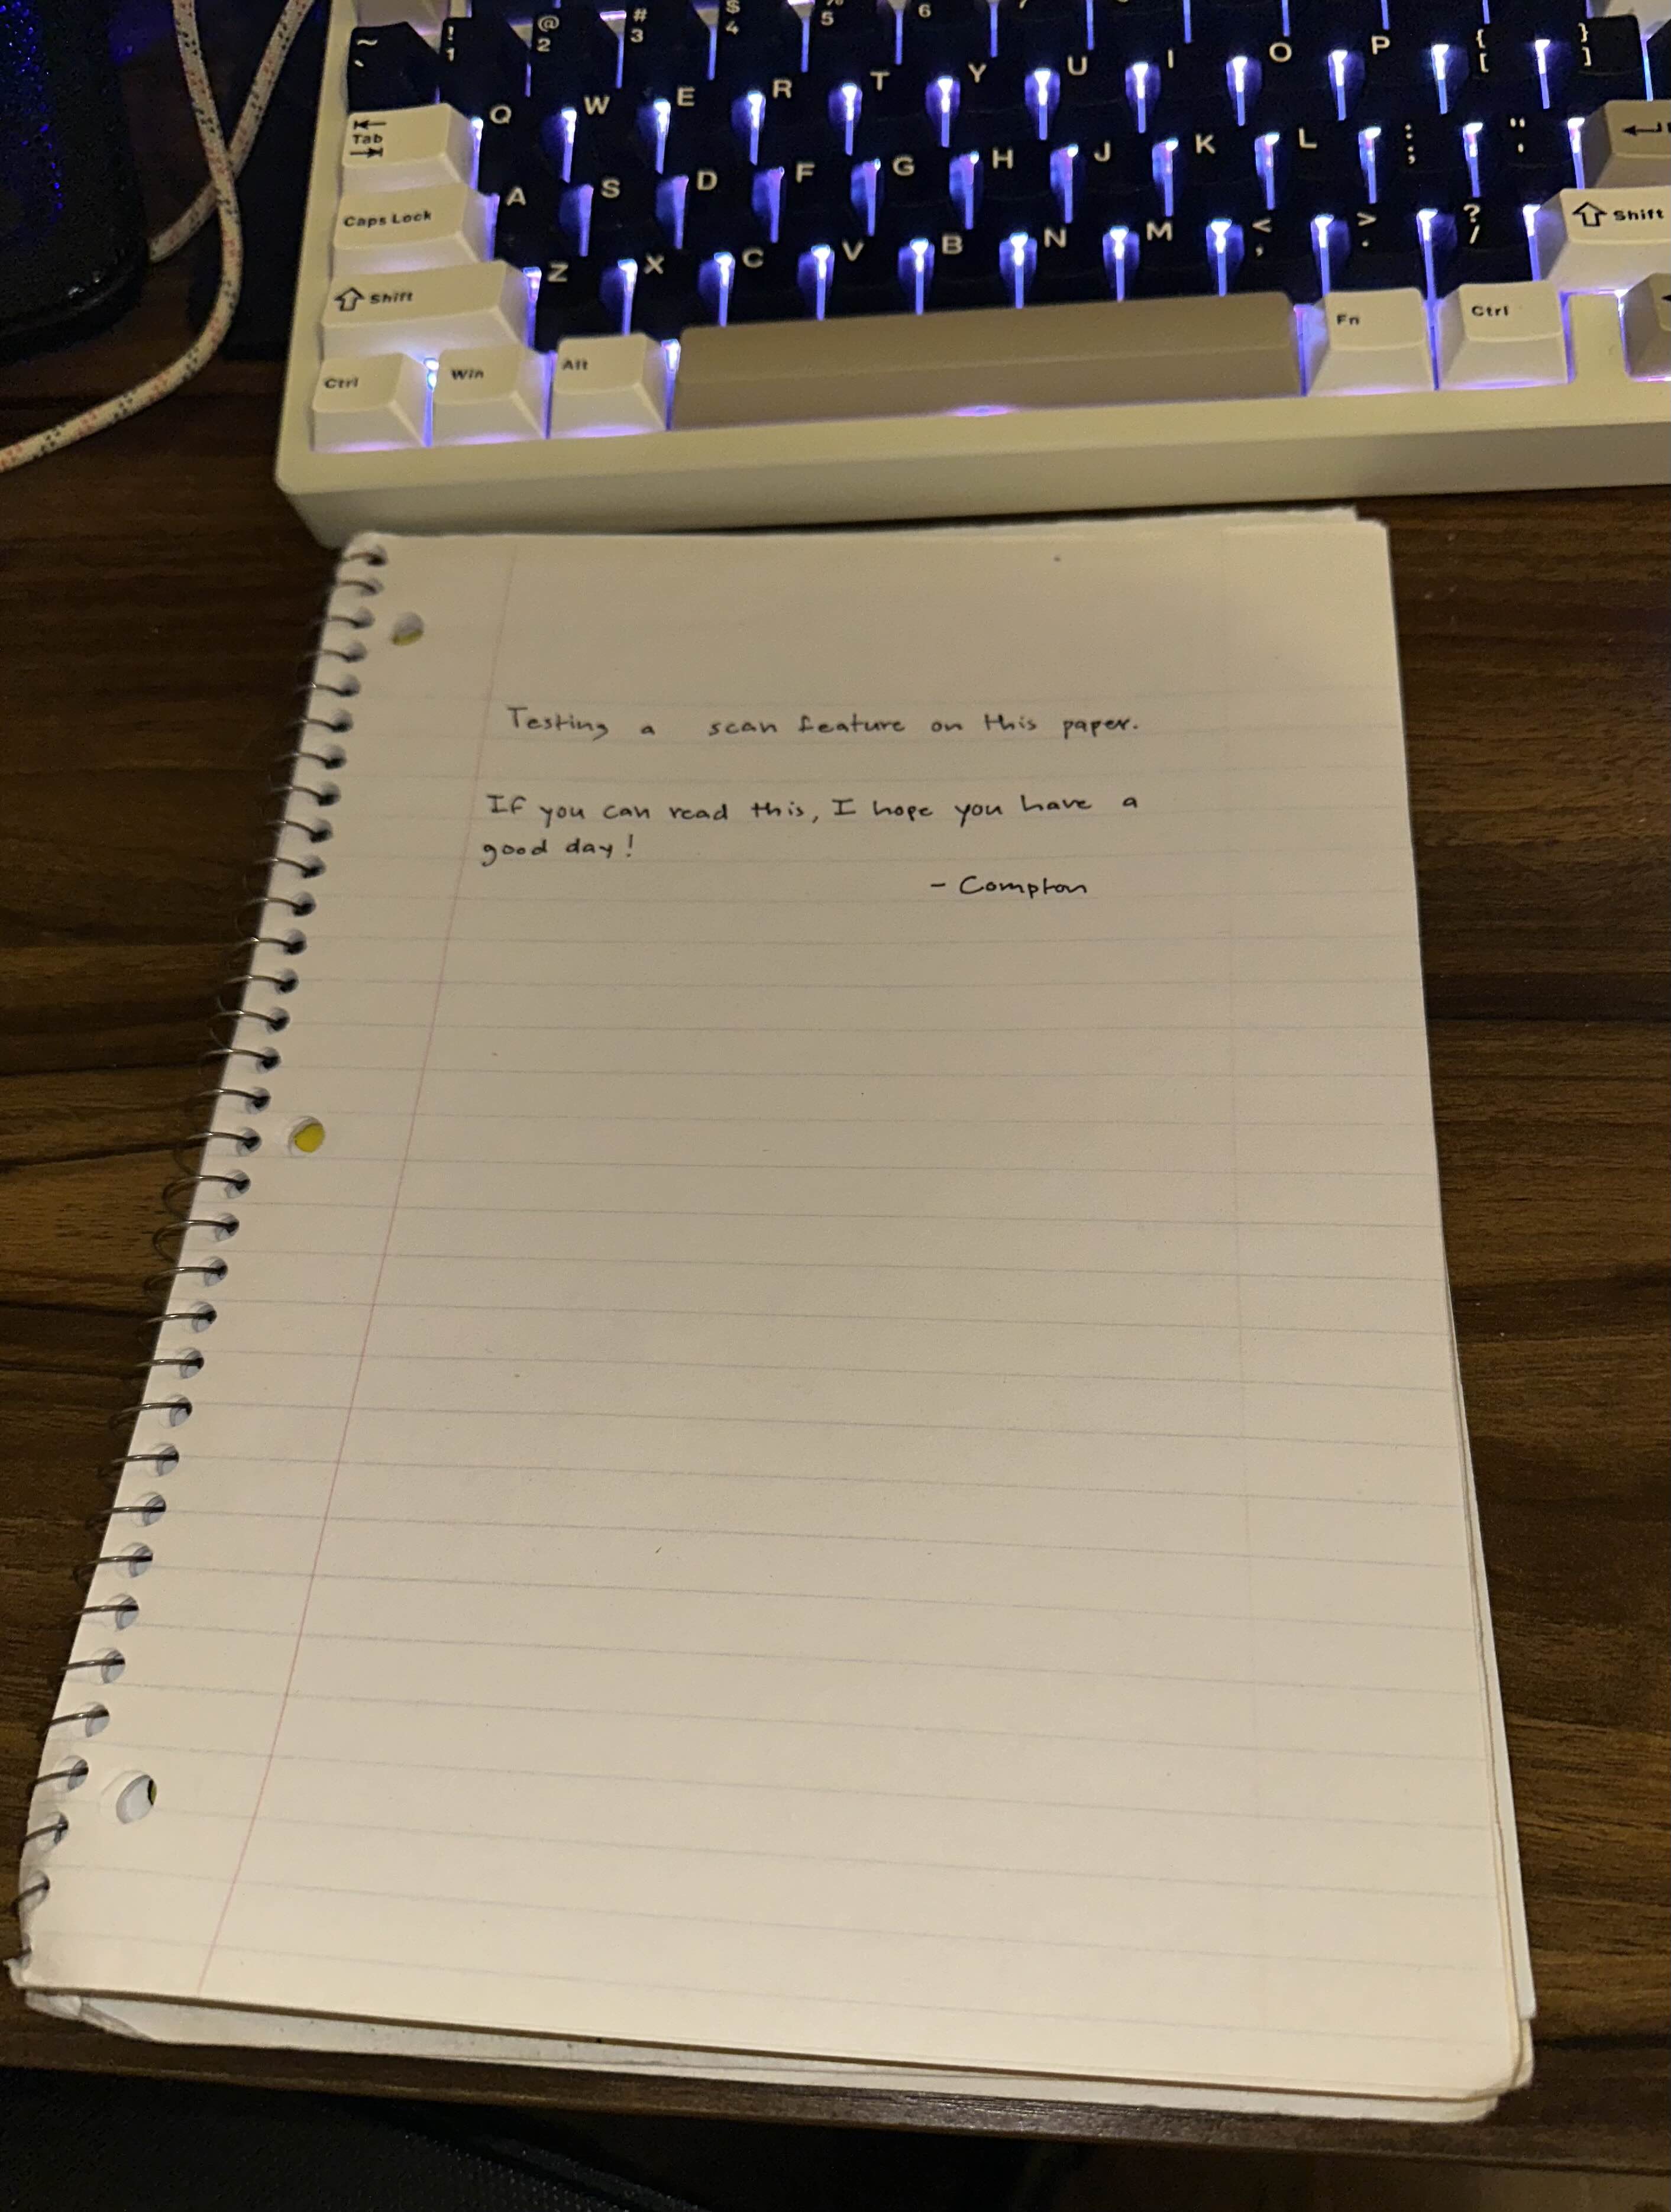 ~ ! @ # $ % 
` 1 2 3 4 5 6
Tab Q W E R T Y U I O P { }
[ ]
Caps Lock A S D F G H J K L : "
; '
Shift Z X C V B N M < > ? Shift
, . /
Ctrl Win Alt Fn Ctrl
Testing a scan feature on this paper.
If you can read this, I hope you have a
good day!
- Compton